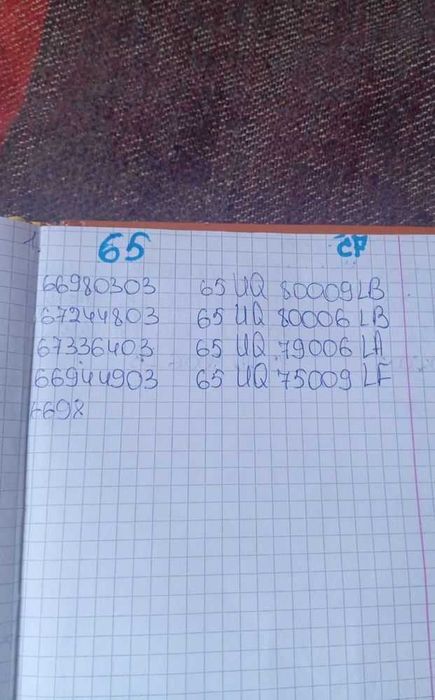 1
65 CF
66980303 65 UQ 80009LB
67244803 65 UQ 80006 LB
67336403 65 UQ 79006 LA
66944903 65 UQ 75009 LF
6698